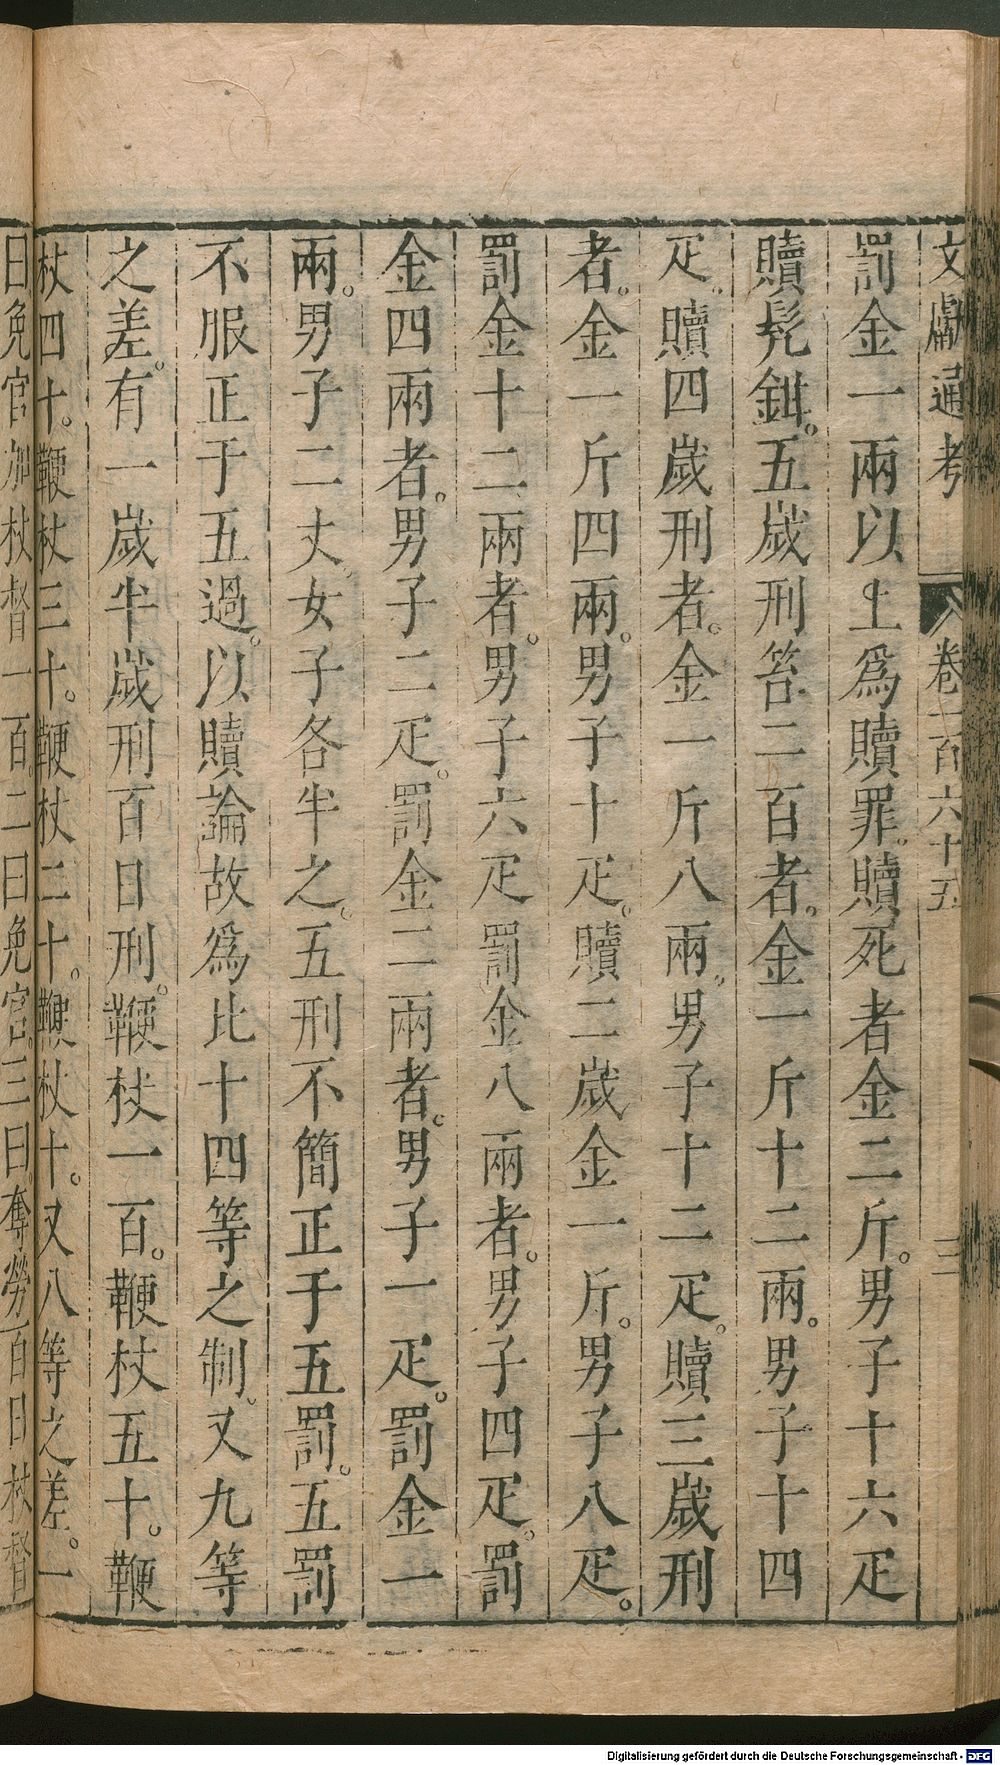 文獻通考 卷一百六十五 三
罰金一兩以上爲贖罪。贖死者金二斤。男子十六疋
贖髡鉗。五歲刑笞二百者。金一斤十二兩。男子十四
疋。贖四歲刑者。金一斤八兩。男子十二疋。贖三歲刑
者。金一斤四兩。男子十疋。贖二歲金一斤。男子八疋。
罰金十二兩者。男子六疋罰金八兩者。男子四疋。罰
金四兩者。男子二疋。罰金二兩者。男子一疋。罰金一
兩。男子二丈。女子各半之。五刑不簡正于五罰。五罰
不服正于五過。以贖論故爲比十四等之制。又九等
之差。有一歲半歲刑百日刑。鞭杖一百。鞭杖五十。鞭
杖四十。鞭杖三十。鞭杖二十。鞭杖十。又八等之差。一
曰免官加杖督一百。二曰免官。三曰。奪勞百日杖督
Digitalisierung gefördert durch die Deutsche Forschungsgemeinschaft - DFG